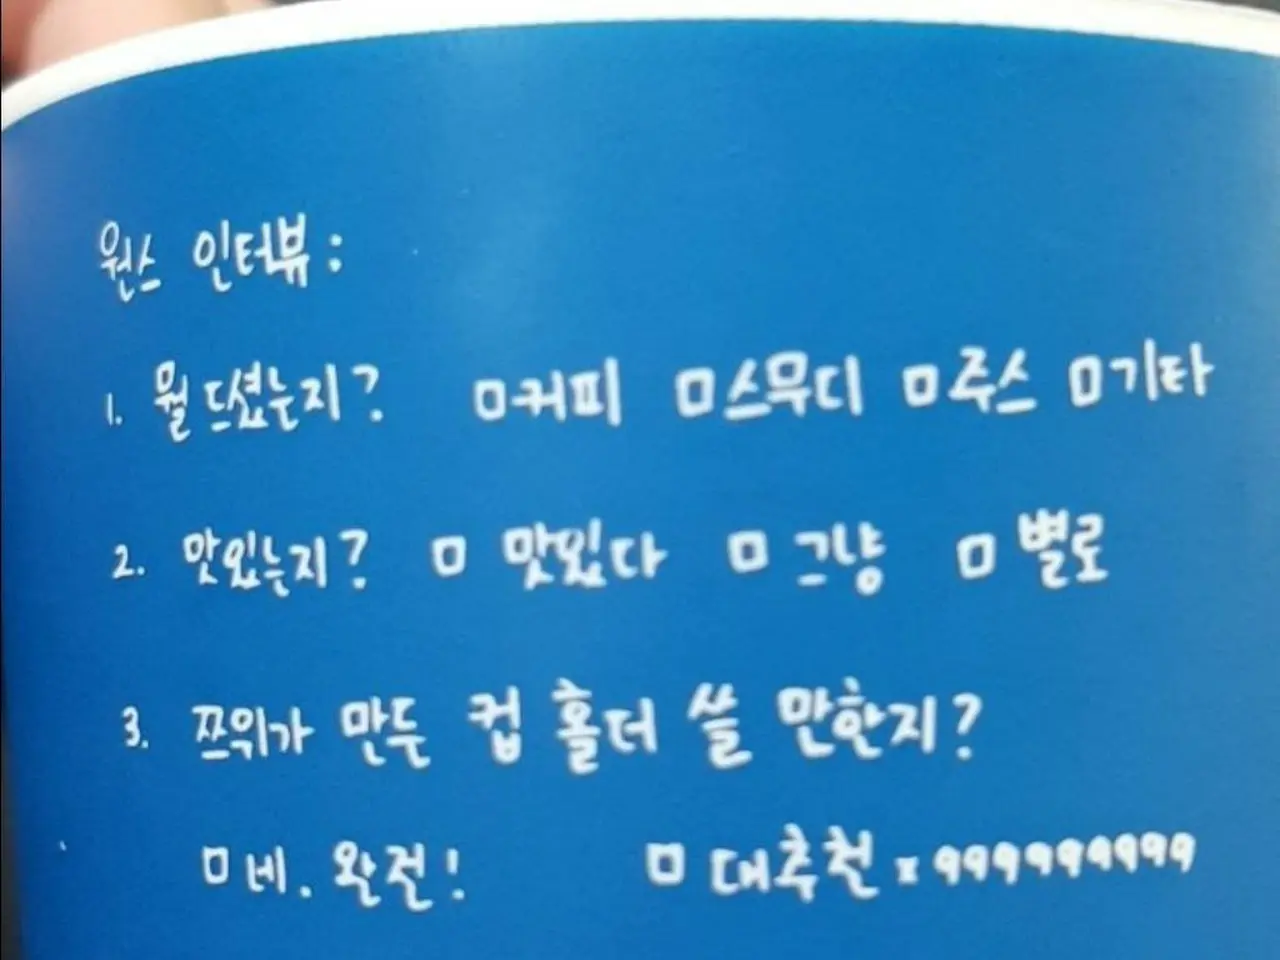 원스 인터뷰 :
1. 뭘 드셨는지? □커피 □스무디 □주스 □기타
2. 맛있는지? □ 맛있다 □ 그냥 □ 별로
3. 쯔위가 만든 컵 홀더 쓸 만한지?
□네. 완전! □ 대추천 x 999999999